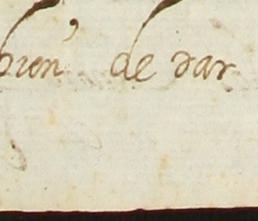 bien de dar